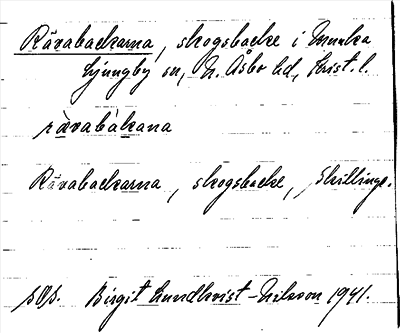 Rävabackarna, skogsbacke i Munka
Ljungby sn, N. Åsbo hd, Krist. l.
rävabàkana
Rävabackarna, skogsbacke, Skillinge.
sØs. Birgit Lundkvist-Nilsson 1941.